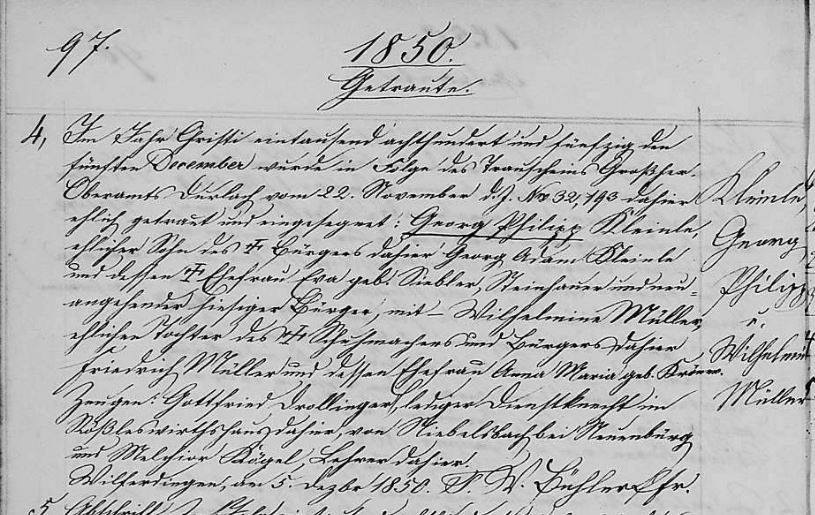 97.
1850.
Getraute.
4, Im Jahr Christi eintausend achthundert und fünfzig den
fünften December wurde in Folge des Trauscheins Großher.
Oberamts Durlach vom 22. November d.J. No 32,193 dahier
ehlich getraut und eingesegnet: Georg Philipp Kleinle,
ehlicher Sohn des ☩ Bürgers dahier Georg Adam Kleinle
und dessen ☩ Ehefrau Eva geb. Siebler, Steinhauer und neu-
angehender hiesiger Bürger, mit – Wilhelmine Müller,
ehlichen Tochter des ☩ Schuhmachers und Bürgers dahier
Friedrich Müller und dessen Ehefrau Anna Maria geb.
Zeugen: Gottfried Drollinger, lediger Dienstknecht im
Rößleswirthshaus dahier, von Niebelsbach bei Neuenbürg
und Melchior Kögel, Lehrer dahier.
Wilferdingen, den 5. Dezbr 1850. Bühler Pfr.
5
Kleinle,
Georg
Philipp
u.
Wilhelmine
Müller